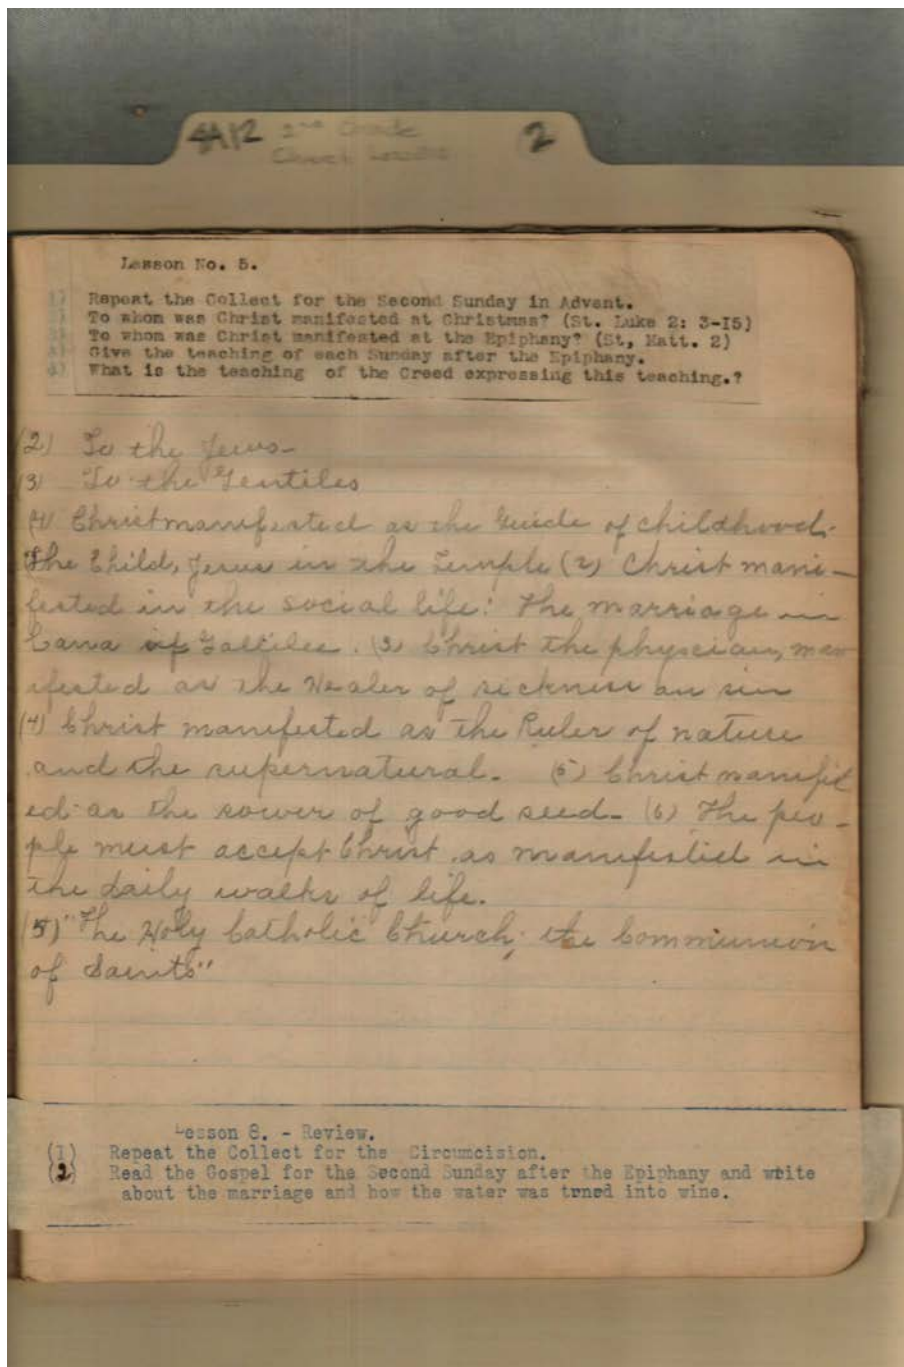 4A12 2nd Grade 2
Church Lessons
Lesson No. 5.
1) Repeat the Collect for the Second Sunday in Advent.
To whom was Christ manifested at Christmas? (St. Luke 2: 3-I5)
To whom was Christ manifested at the Epiphany? (St, Matt. 2)
Give the teaching of each Sunday after the Epiphany.
What is the teaching of the Creed expressing this teaching.?
(2) To the Jews-
(3) To the Gentiles
(4) Christ manifested as the Guide of childhood.
The Child, Jesus in the Temple (2) Christ mani-
fested in the social life: The marriage in
Cana of Galilee. (3) Christ the physcian, man
ifested as the Healer of sickness an sin
(4) Christ manifested as the Ruler of nature
and the supernatural. (5) Christ manifest
ed as the sower of good seed- (6) The peo-
ple must accept Christ as manifested in
the daily walks of life.
(5) "The Holy Catholic Church; the Communion
of Saints"
Lesson 8. - Review.
(I) Repeat the Collect for the Circumcision.
(2) Read the Gospel for the Second Sunday after the Epiphany and write
about the marriage and how the water was trned into wine.